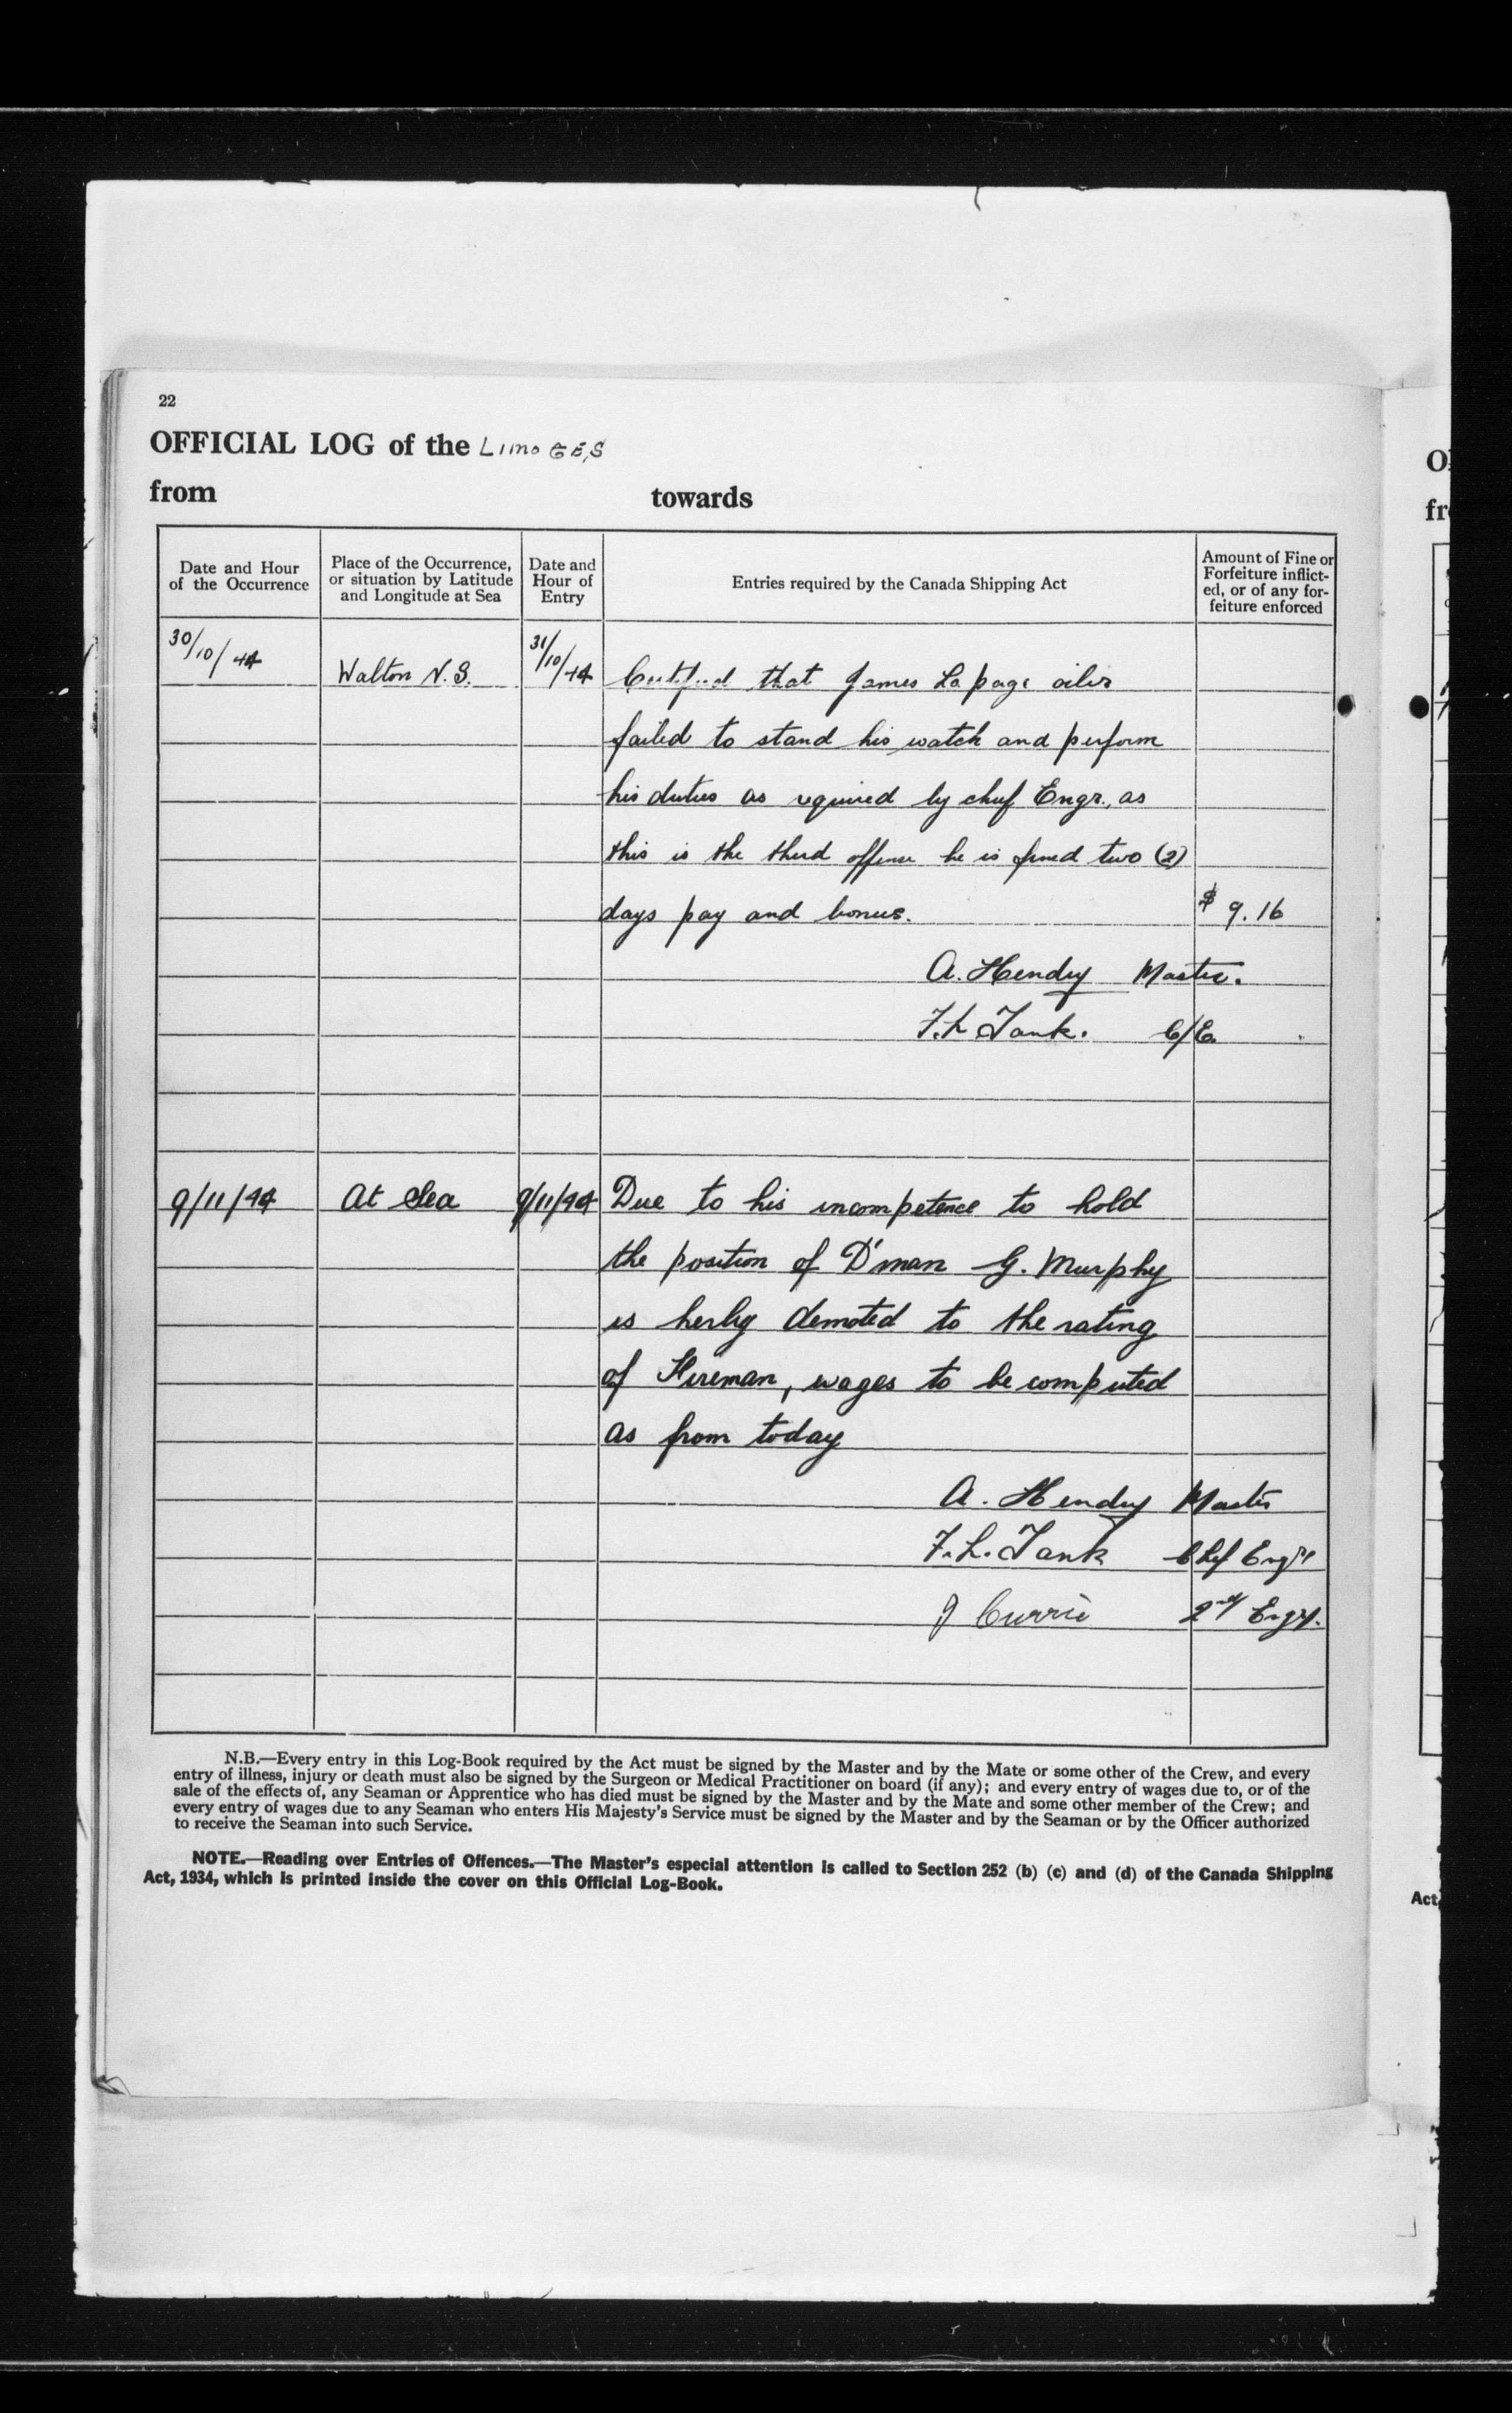 22
OFFICIAL LOG of the LimoGES
from towards
Date and Hour of the Occurrence
Place of the Occurrence, or situation by Latitude and Longitude at Sea
Date and Hour of Entry
Entries required by the Canada Shipping Act
Amount of Fine or Forfeiture inflicted, or of any forfeiture enforced
30/10/44 Walton N.S. 31/10/44 Certified that James La page oiler
failed to stand his watch and perform
his duties as required by chief Engr., as
this is the third offense he is fined two (2)
days pay and bonus. $ 9.16
A. Hendry Master.
F.L Tank. C/E.
9/11/44 At Sea 9/11/44 Due to his incompetence to hold
the position of D'man G. Murphy
is herby demoted to the rating
of Fireman, wages to be computed
as from today
A. Hendry Master
F.L. Tank Chf Engr
J Currie 2nd Engr.
N.B.—Every entry in this Log-Book required by the Act must be signed by the Master and by the Mate or some other of the Crew, and every
entry of illness, injury or death must also be signed by the Surgeon or Medical Practitioner on board (if any); and every entry of wages due to, or of the
sale of the effects of, any Seaman or Apprentice who has died must be signed by the Master and by the Mate and some other member of the Crew; and
every entry of wages due to any Seaman who enters His Majesty's Service must be signed by the Master and by the Seaman or by the Officer authorized
to receive the Seaman into such Service.
NOTE.—Reading over Entries of Offences.—The Master's especial attention is called to Section 252 (b) (c) and (d) of the Canada Shipping
Act, 1934, which is printed inside the cover on this Official Log-Book.
Act,